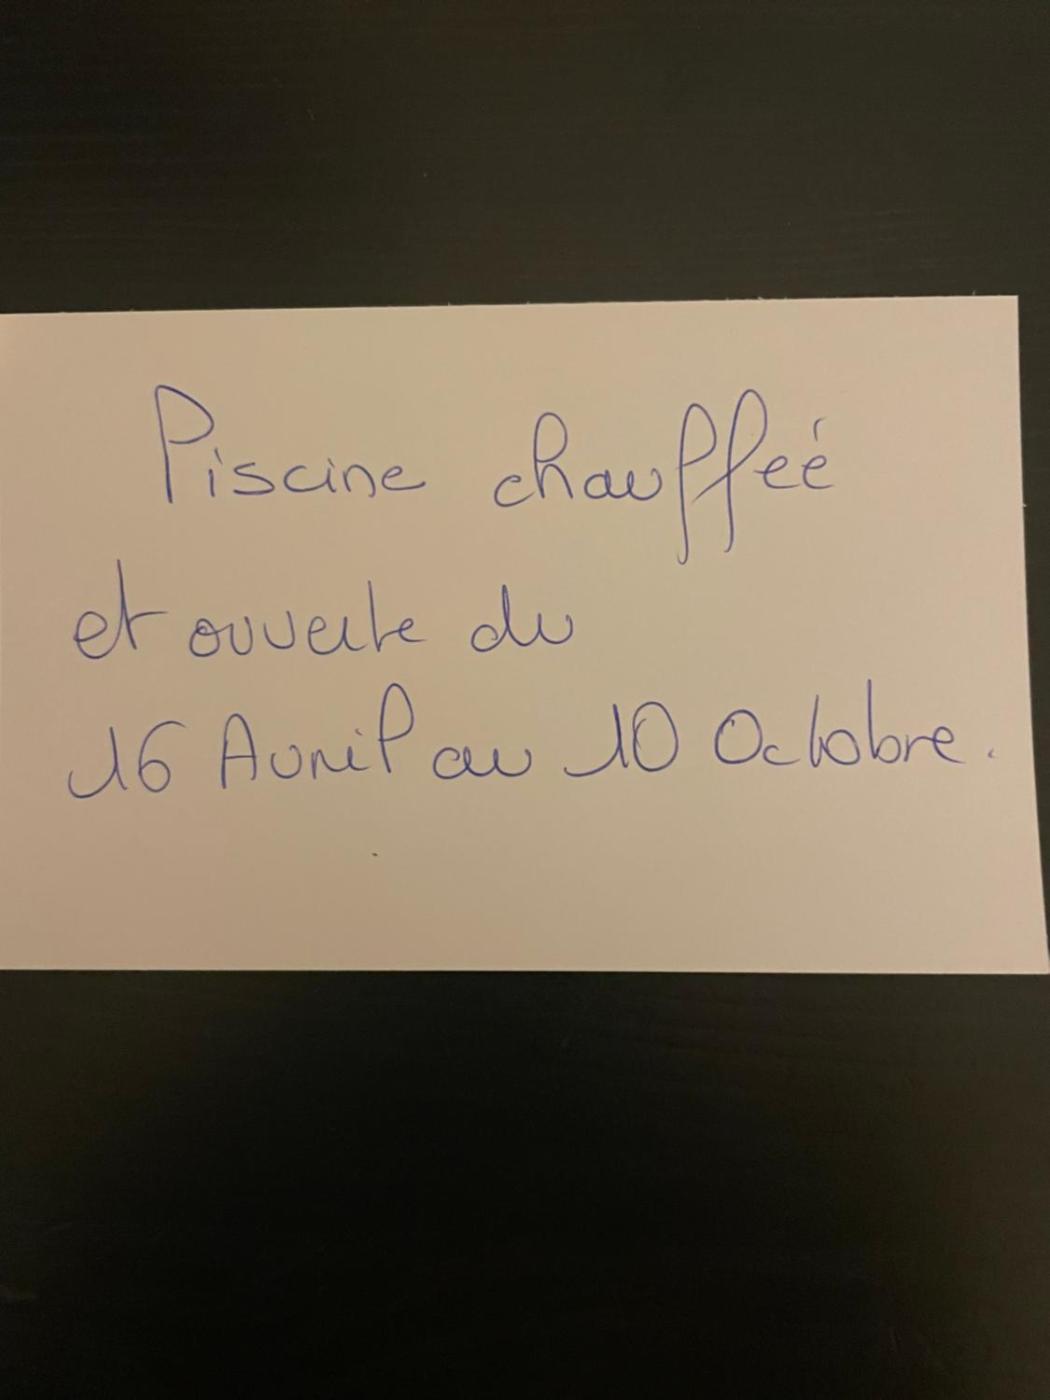 Piscine chauffeé
et ouverte du
16 Avril au 10 Octobre.